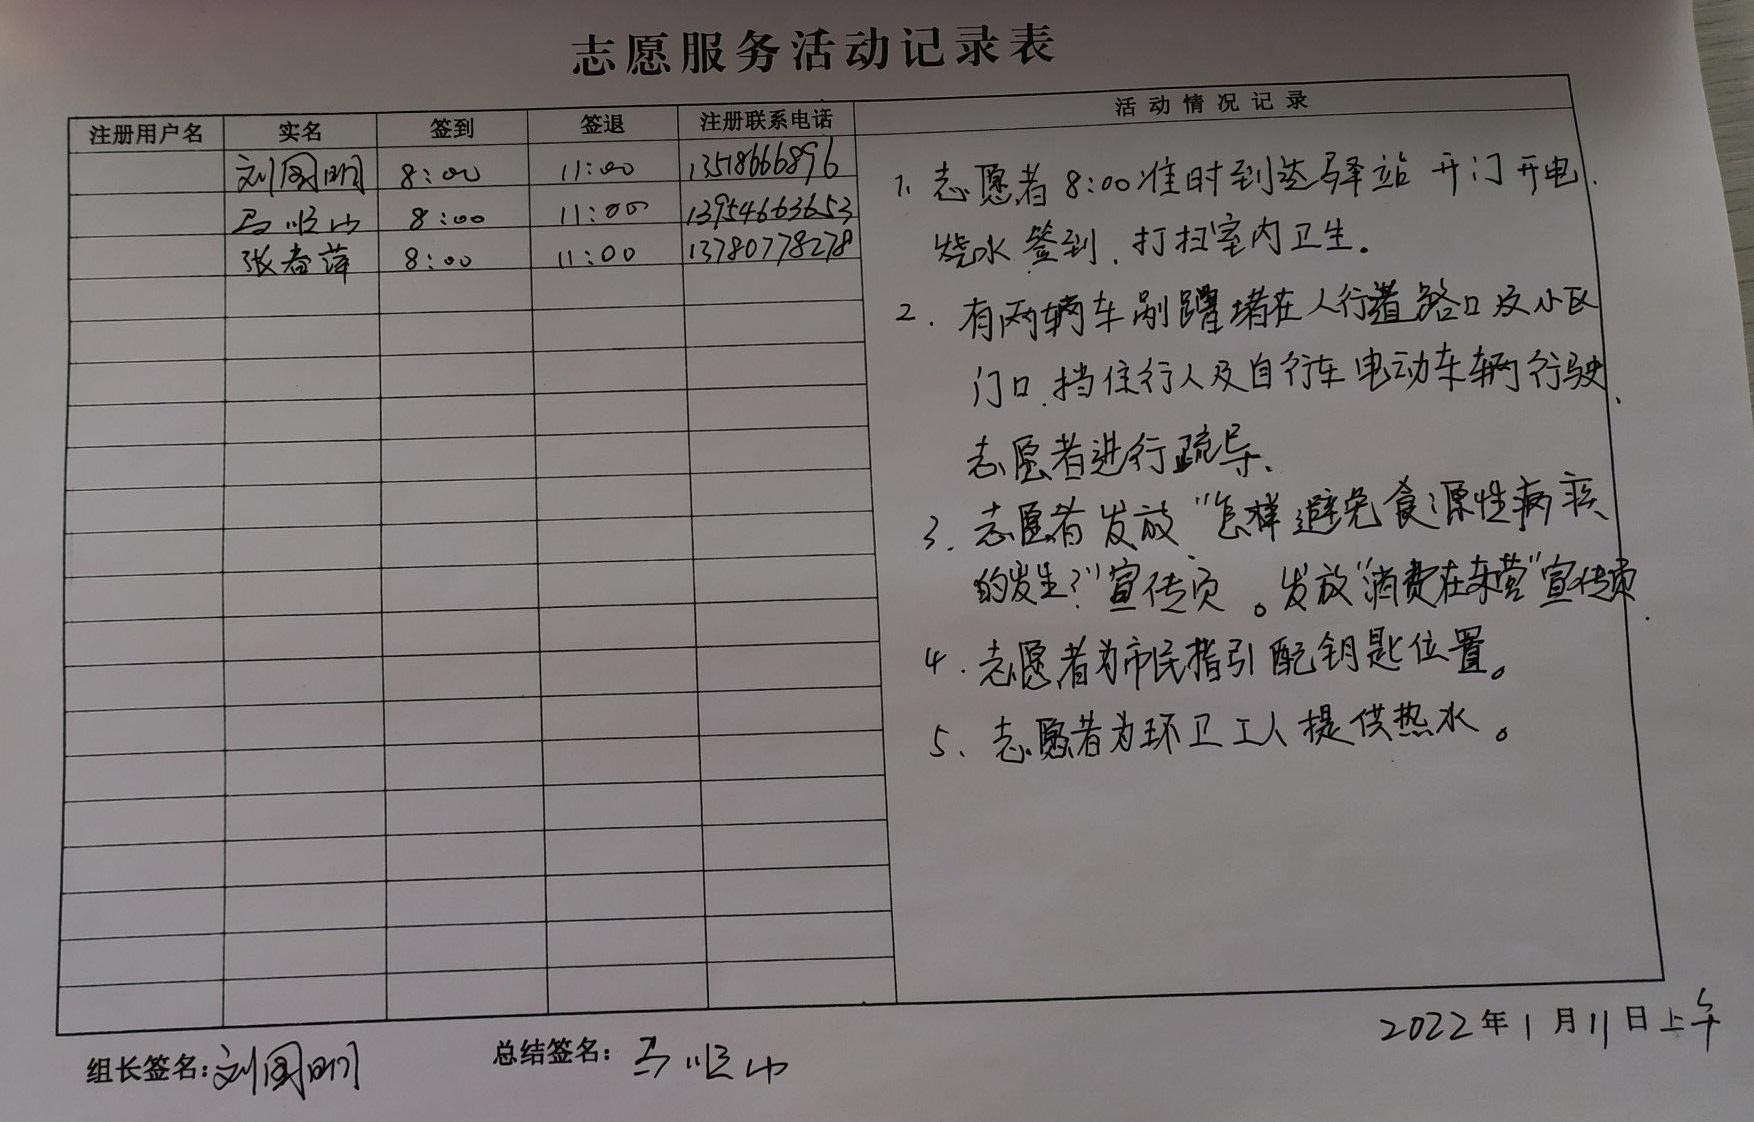 志愿服务活动记录表
注册用户名 实名 签到 签退 注册联系电话 活动情况记录
刘国明 8:00 11:00 13518666896
马顺山 8:00 11:00 13954663653
张春萍 8:00 11:00 13780778278
1. 志愿者8:00准时到达驿站 开门开电.
烧水签到.打扫室内卫生。
2. 有两辆车剐蹭堵在人行道路口及小区
门口.挡住行人及自行车电动车辆行驶、
志愿者进行疏导、
3. 志愿者发放“怎样避免食源性病疾
的发生?”宣传页。发放“消费在东营”宣传页.
4. 志愿者为市民指引配钥匙位置。
5、志愿者为环卫工人提供热水。
2022年1月11日上午
组长签名:刘国明 总结签名:马顺山